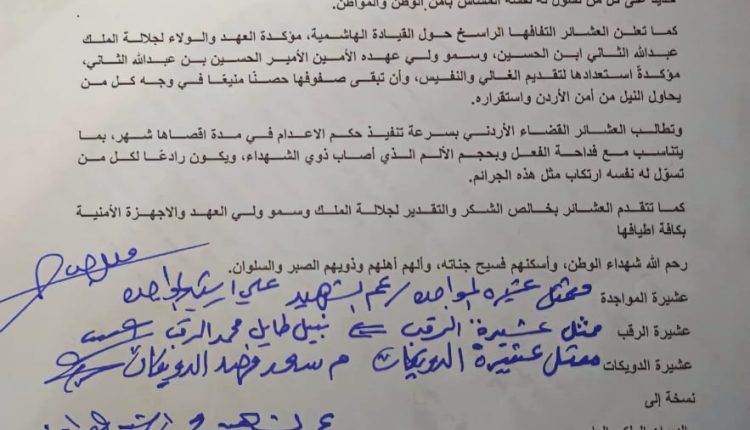 حديد على كل من تسول له نفسه المساس بأمن الوطن والمواطن.
كما تعلن العشائر التفافها الراسخ حول القيادة الهاشمية، مؤكدة العهد والولاء لجلالة الملك
عبدالله الثاني ابن الحسين، وسمو ولي عهده الأمين الأمير الحسين بن عبدالله الثاني،
مؤكدةً استعدادها لتقديم الغالي والنفيس، وأن تبقى صفوفها حصنًا منيعًا في وجه كل من
يحاول النيل من أمن الأردن واستقراره.
وتطالب العشائر القضاء الأردني بسرعة تنفيذ حكم الاعدام في مدة اقصاها شهر، بما
يتناسب مع فداحة الفعل وبحجم الألم الذي أصاب ذوي الشهداء، ويكون رادعًا لكل من
تسوّل له نفسه ارتكاب مثل هذه الجرائم.
كما تتقدم العشائر بخالص الشكر والتقدير لجلالة الملك وسمو ولي العهد والاجهزة الأمنية
بكافة اطيافها
رحم الله شهداء الوطن، وأسكنهم فسيح جناته، وألهم أهلهم وذويهم الصبر والسلوان.
عشيرة المواجدة ممثل عشيرة المواجده عم الشهيد علي المواجده
عشيرة الرقب ممثل عشيرة الرقب نبيل طايل محمد الرقب
عشيرة الدويكات ممثل عشيرة الدويكات م سعد فهد الدويكات
نسخة إلى